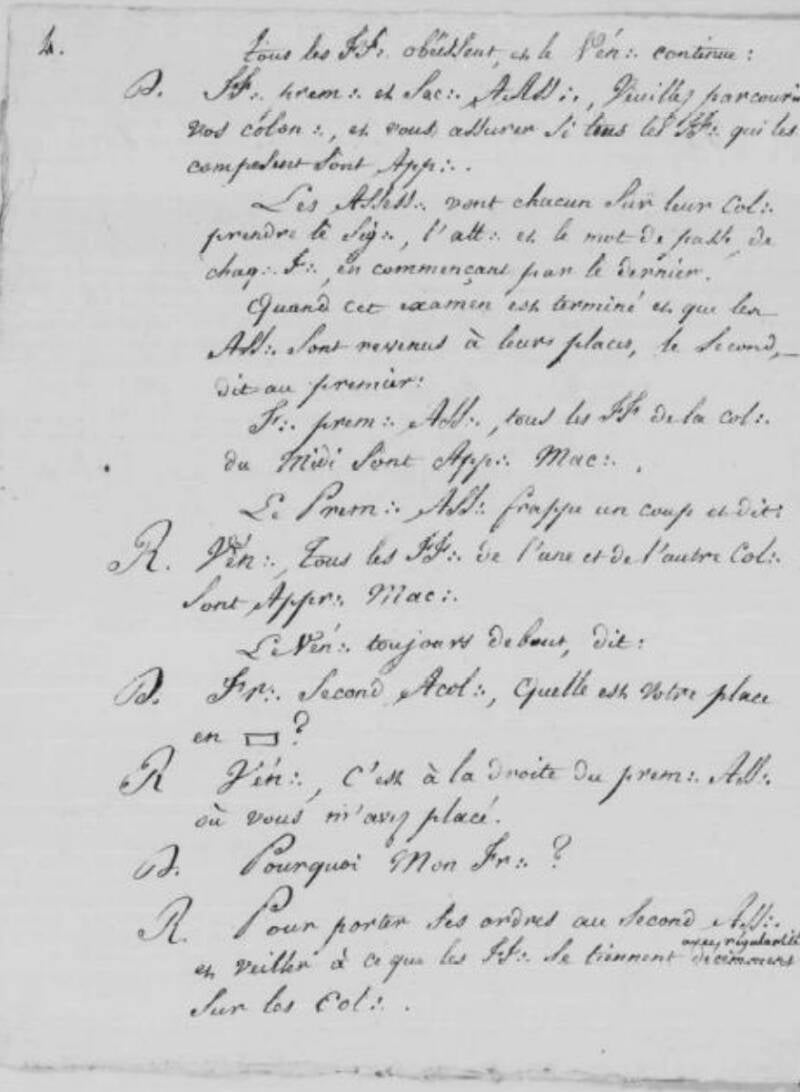 4.
Tous les FF∴ obéissent, et le Vén∴ continue :
D. FF∴ prem∴ et Sec∴ AAss∴, Veuillez parcourir
vos colon∴, et vous assurer si tous les FF∴ qui les
composent sont App∴.
Les Assess∴ vont chacun sur leur Col∴
prendre le Sig∴, l'att∴ et le mot de passe, de
chaq∴ F∴, en commençant par le dernier.
Quand cet examen est terminé et que les
Ass∴ sont revenus à leurs places, le Second,
dit au premier :
F∴ prem∴ Ass∴, tous les FF de la col∴
du Midi sont App∴ Mac∴.
Le Prem∴ Ass∴ frappe un coup et dit :
R. Vén∴, Tous les FF∴ de l'une et de l'autre Col∴
sont Appr∴ Mac∴.
Le Vén∴ toujours debout, dit :
D. Fr∴ Second Acol∴, Quelle est votre place
en ▭ ?
R Vén∴, C'est à la droite du prem∴ Ass∴
où vous m'avez placé.
D. Pourquoi Mon Fr∴ ?
R. Pour porter ses ordres au Second Ass∴
avec régularité
et veiller à ce que les FF∴ se tiennent
sur les Col∴.